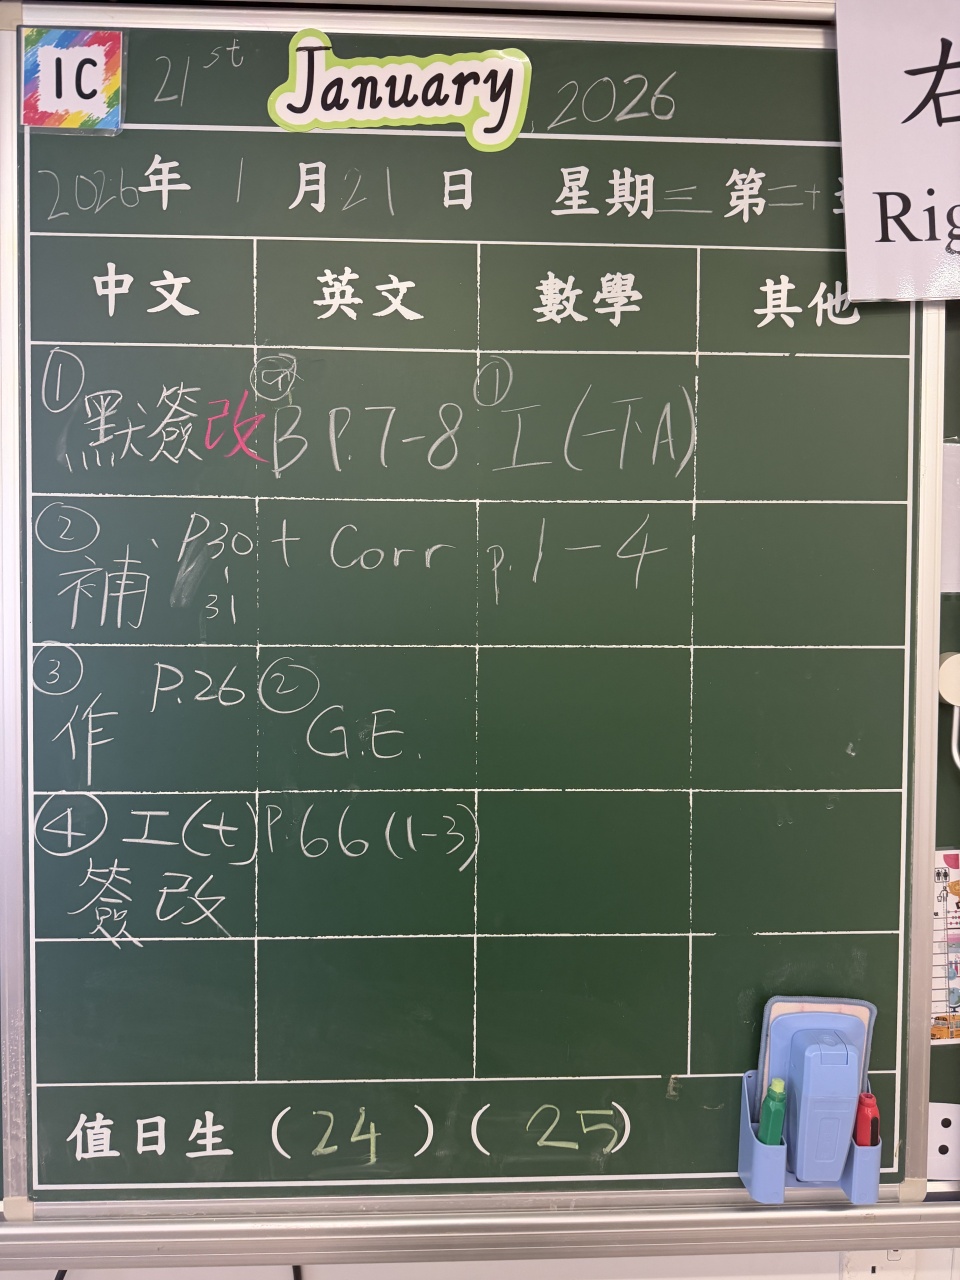 1C 21st January, 2026
2026年 1月21日 星期三 第二十
中文 英文 數學 其他
① 默簽改
② 補 P.30
|
31
③ 作 P.26
④ 工(十)
簽改
B P.7-8
+ Corr
② G.E.
P.66(1-3)
① 工(一下A)
p.1-4
值日生(24)(25)
右
Rig